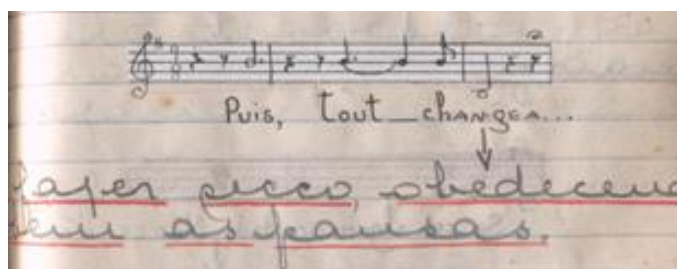 Puis, tout_changea...
fazer secco, obedecend
bem as pausas.